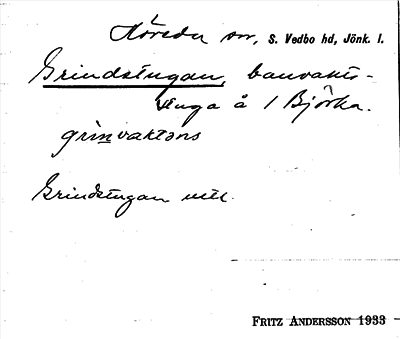 Höreda sn, S. Vedbo hd, Jönk. l.
Grindstugan, banvakts-
stuga å 1 Björka.
grinvaktens
Grindstugan uttl.
FRITZ ANDERSSON 1933